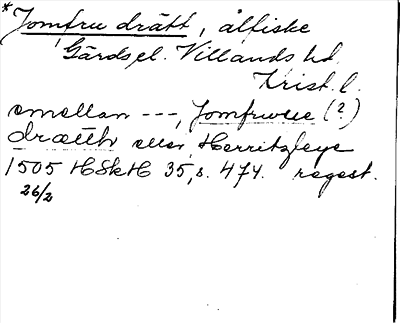 * Jomfru drätt, ålfiske
Gärds el. Villands hd
Krist. l.
emellan ---, Jomfrwee (?)
drætth eller Herritzleye
1505 HSkH 35, s. 474. regest.
26/2